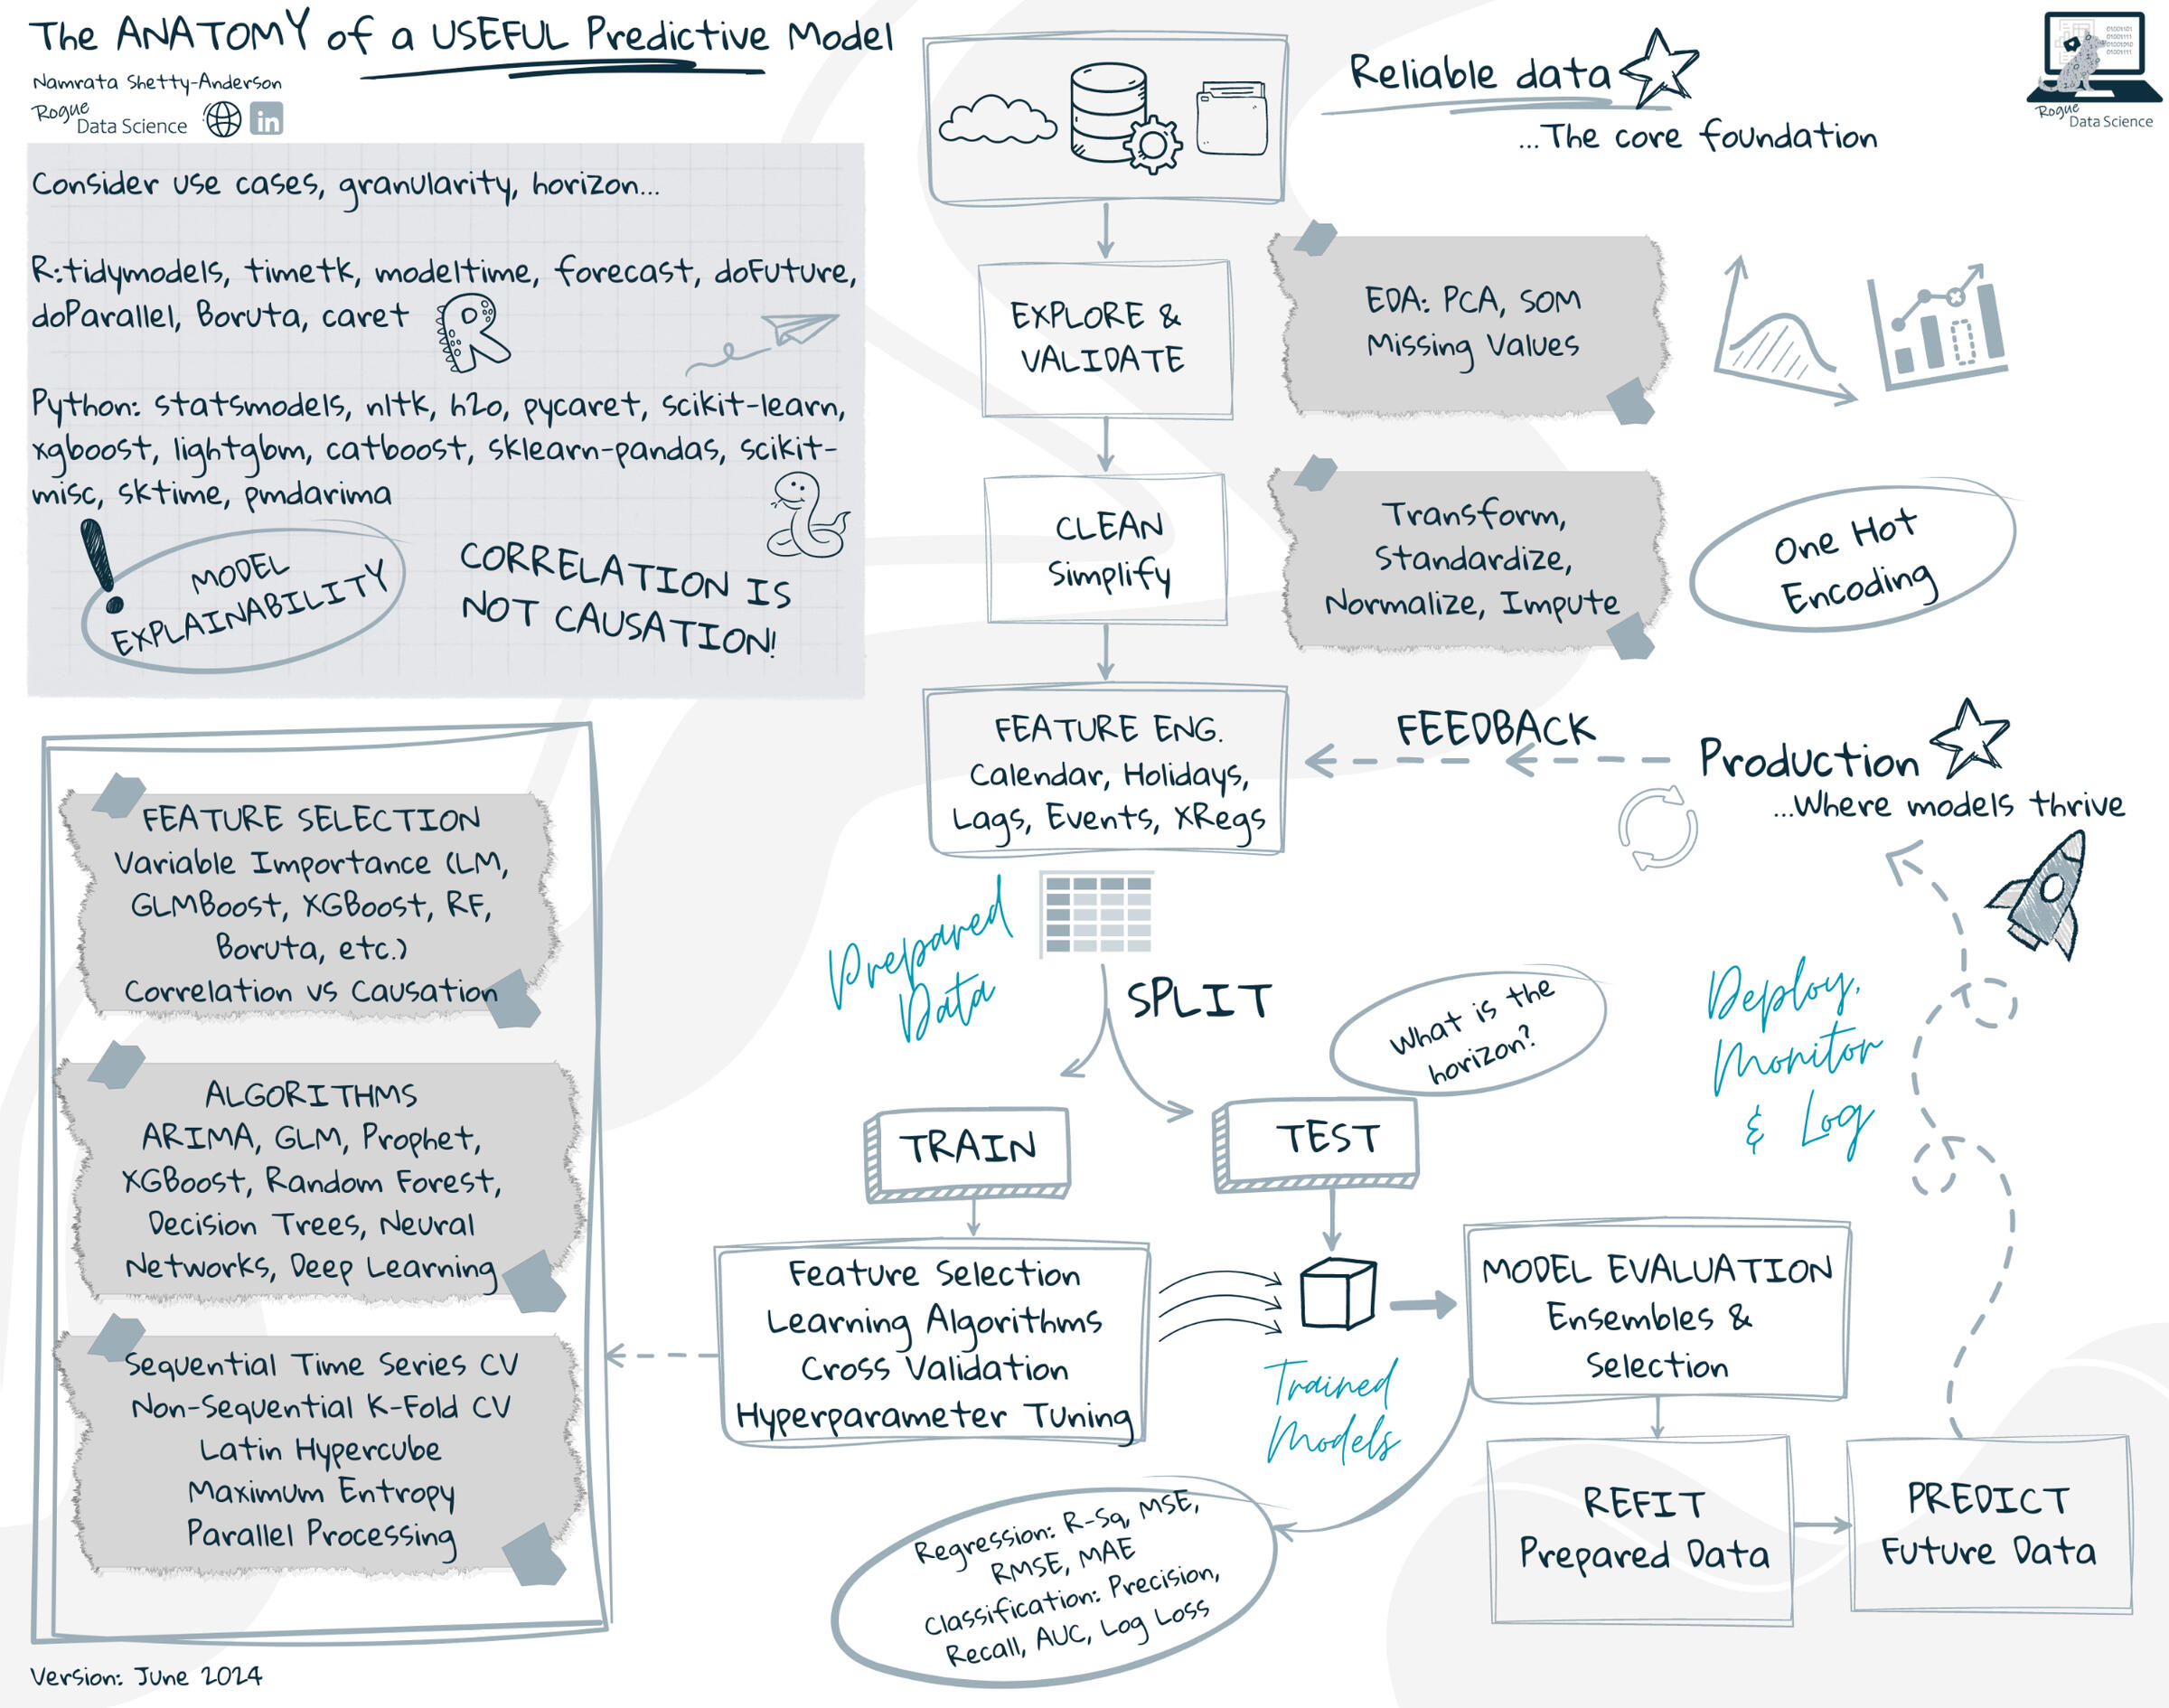 The ANATOMY of a USEFUL Predictive Model
Namrata Shetty-Anderson
Rogue
Data Science
in
Consider use cases, granularity, horizon...
R:tidymodels, timetk, modeltime, forecast, doFuture,
doParallel, Boruta, caret
R
Python: statsmodels, nltk, h2o, pycaret, scikit-learn,
xgboost, lightgbm, catboost, sklearn-pandas, scikit-
misc, sktime, pmdarima
!
MODEL
EXPLAINABILITY
CORRELATION IS
NOT CAUSATION!
Reliable data
...The core foundation
01001101
01001111
01001010
01001111
Rogue
Data Science
EXPLORE &
VALIDATE
EDA: PCA, SOM
Missing Values
CLEAN
Simplify
Transform,
Standardize,
Normalize, Impute
One Hot
Encoding
FEATURE ENG.
Calendar, Holidays,
Lags, Events, XRegs
FEEDBACK
Production
...Where models thrive
Prepared
Data
SPLIT
What is the
horizon?
Deploy,
Monitor
& Log
TRAIN
TEST
Feature Selection
Learning Algorithms
Cross Validation
Hyperparameter Tuning
Trained
Models
MODEL EVALUATION
Ensembles &
Selection
REFIT
Prepared Data
PREDICT
Future Data
Regression: R-Sq, MSE,
RMSE, MAE
Classification: Precision,
Recall, AUC, Log Loss
FEATURE SELECTION
Variable Importance (LM,
GLMBoost, XGBoost, RF,
Boruta, etc.)
Correlation vs Causation
ALGORITHMS
ARIMA, GLM, Prophet,
XGBoost, Random Forest,
Decision Trees, Neural
Networks, Deep Learning
Sequential Time Series CV
Non-Sequential K-Fold CV
Latin Hypercube
Maximum Entropy
Parallel Processing
Version: June 2024